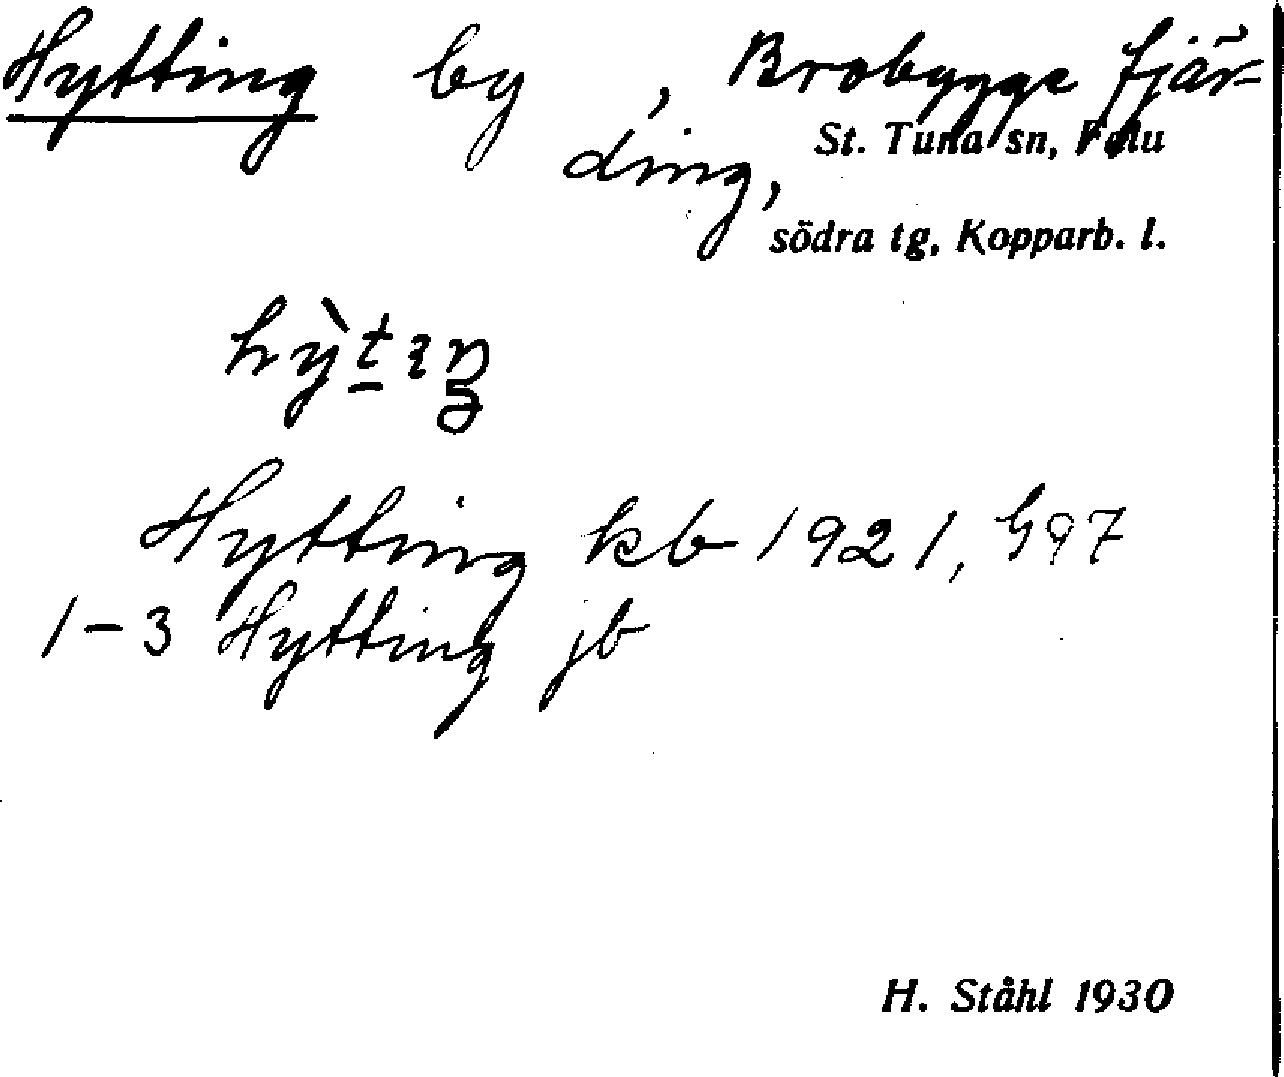 Hytting by, Brobygge fjär-
ding,
St. Tuna sn, Falu
södra tg, Kopparb. l.
hỳtıŋ
Hytting kb 1921, 597
1-3 Hytting jb
H. Ståhl 1930